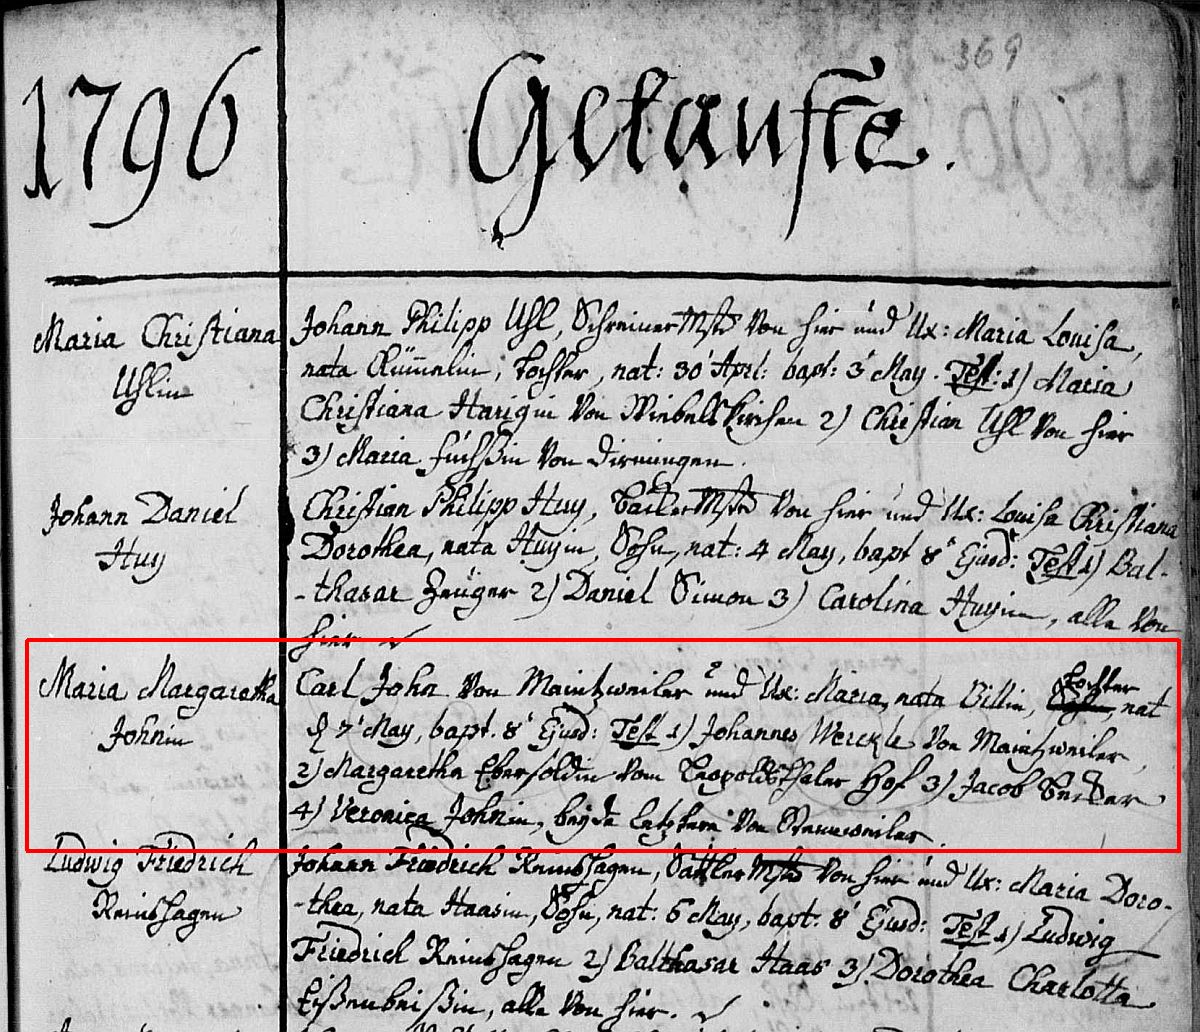 369
1796
Getaufte.
Maria Christiana
Uhlin
Johann Philipp Uhl, Schreiner Mstr von hier und Ux: Maria Louisa,
nata Rümmelin, Tochter, nat: 30 Apri: bapt: 3 May. Test: 1) Maria
Christiana Harigin von Wiebelskirchen 2) Christian Uhl von hier
3) Maria Füchßin von Dirmingen.
Johann Daniel
Huy
Christian Philipp Huy, Becker Mstr von hier und Ux: Louisa Christiana
Dorothea, nata Huyin, Sohn, nat: 4 May, bapt 8 Ejusd: Test 1) Bal-
-thasar Zeuger 2) Daniel Simon 3) Carolina Huyin, alle von
hier
Maria Margaretha
Johnin
Carl John von Maintzweiler und Ux: Maria, nata Billin, Tochter, nat
7 May, bapt. 8 Ejusd: Test 1) Johannes Werckle von Maintzweiler,
2) Margaretha Ebersoldin vom Leopoldsthaler Hof 3) Jacob Becker
4) Veronica Johnin, beyde letztere von Stennweiler.
Ludwig Friedrich
Reinshagen
Johann Friedrich Reinshagen, Sattler Mstr von hier und Ux: Maria Doro-
-thea, nata Haasin, Sohn, nat: 6 May, bapt: 8 Ejusd: Test 1) Ludwig
Friedrich Reinshagen 2) Balthasar Haas 3) Dorothea Charlotta
Eißenbeißin, alle von hier.